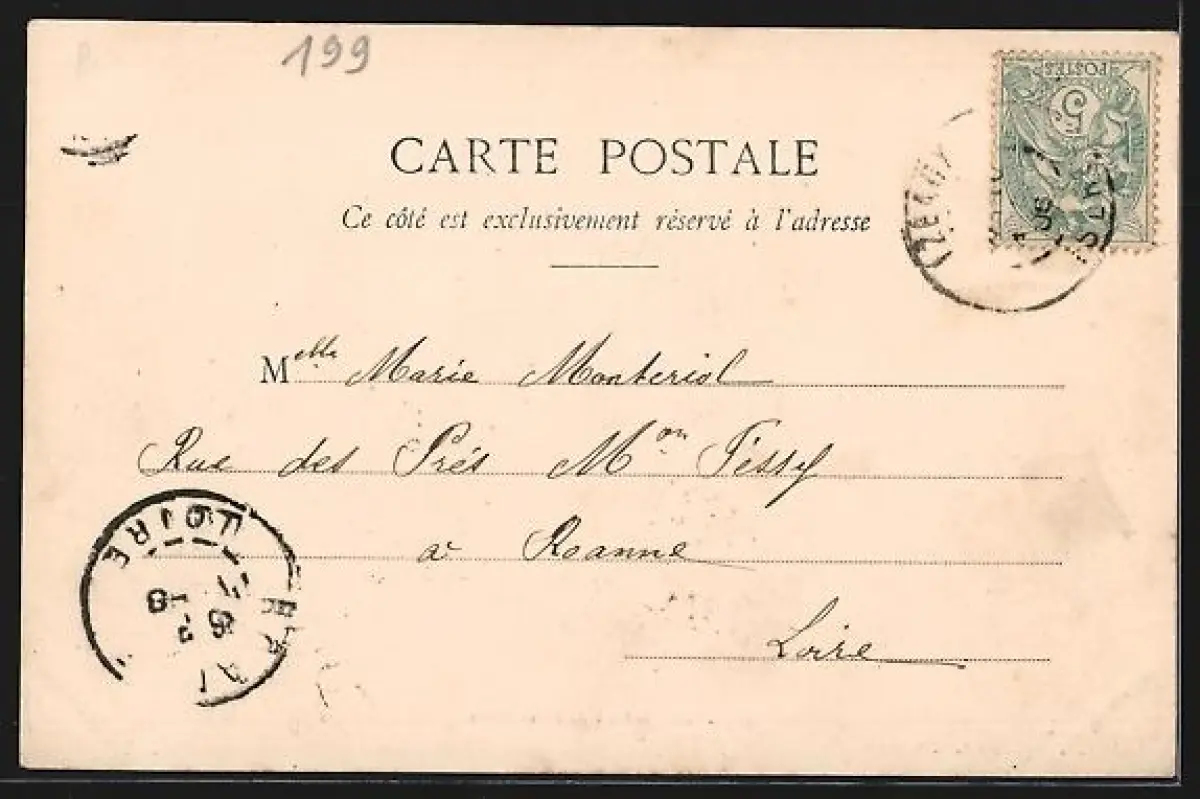 199
POSTES
5
CARTE POSTALE
Ce côté est exclusivement réservé à l'adresse
Melle Marie Monteriol
Rue des Prés Mon Tissy
à Roanne
Loire
LOIRE